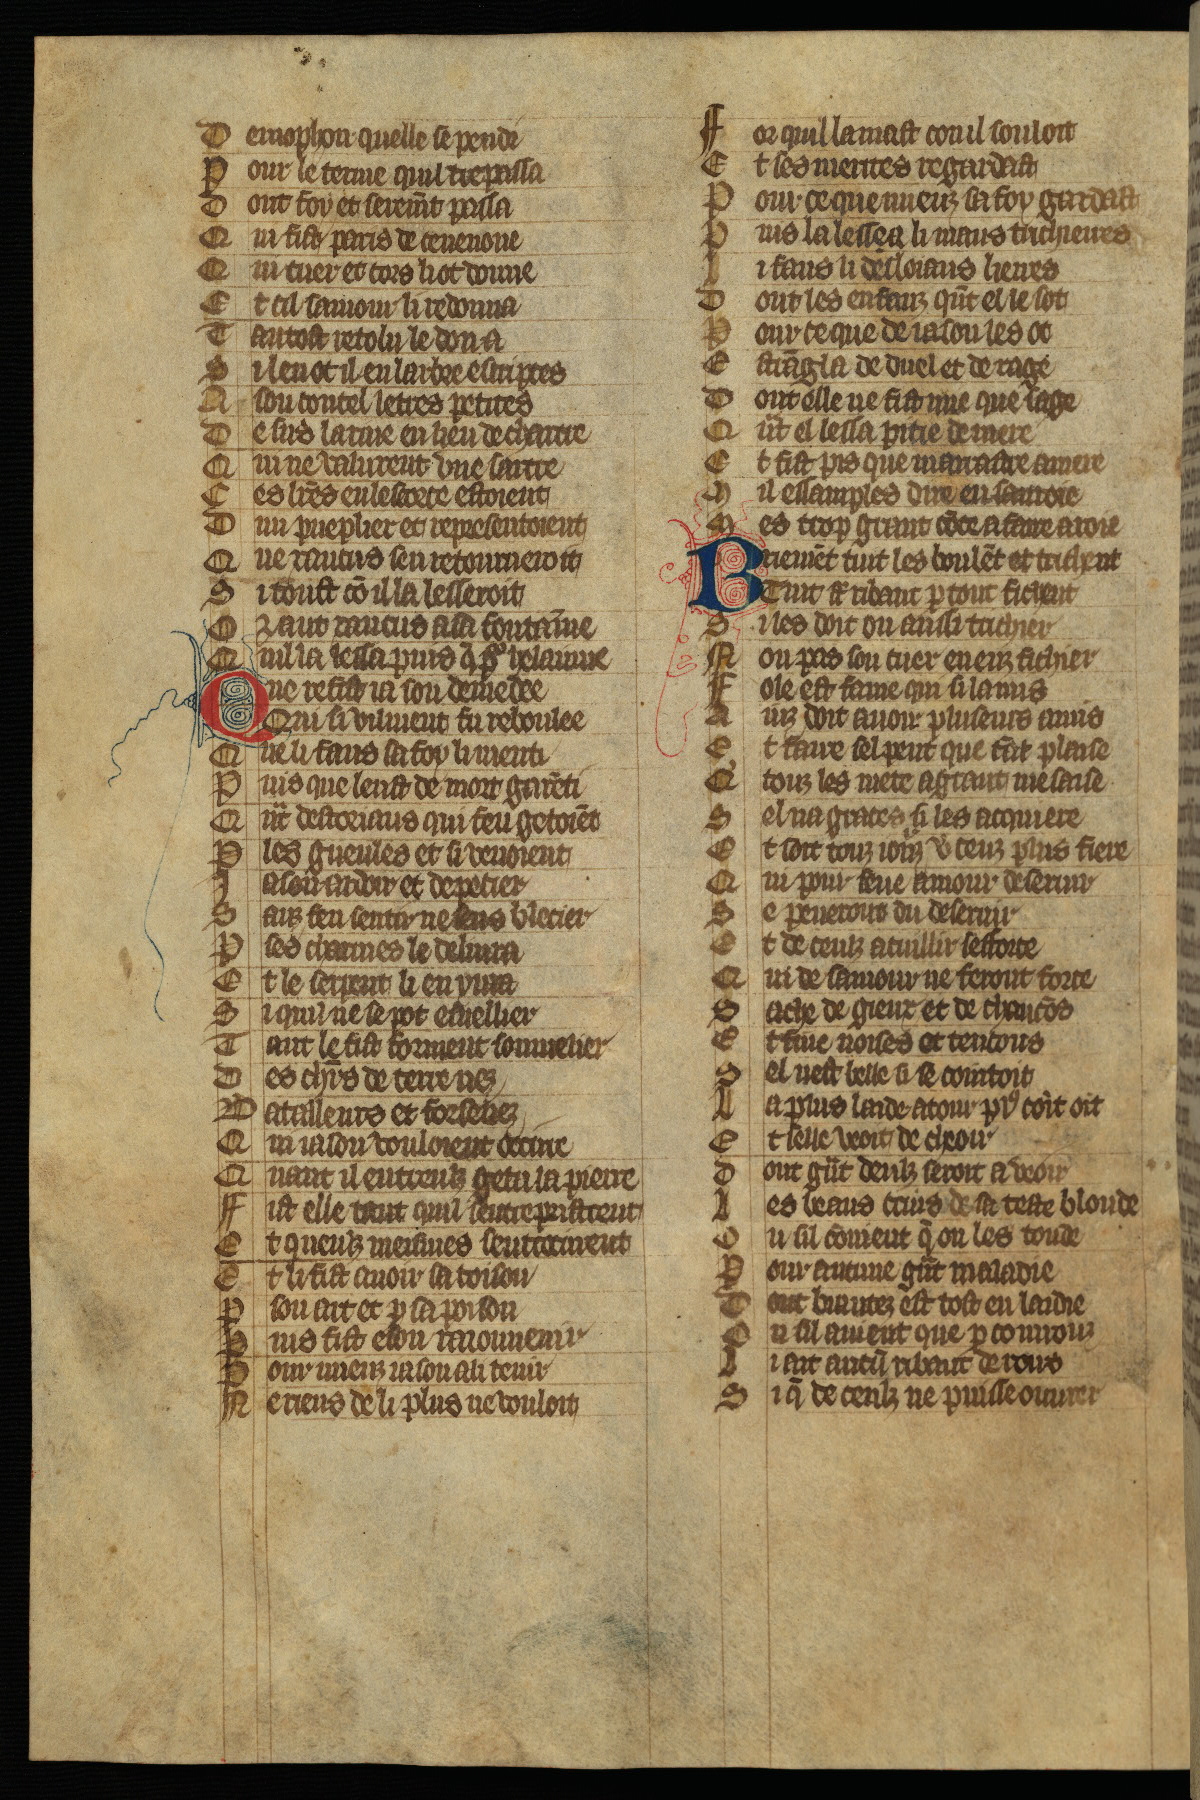 Demophon quelle se pendi
Pour le terme quil trepassa
Dont foy et seremt passa
Qui fist paris de cenenone
Qui cuer et cors li ot donne
Et cil samour li redonna
Tantost retolu le don a
Si len ot il en larbre escriptes
A son coutel letres petites
De sus larme en lieu de chartre
Qui ne valurent vne sartre
Ces lres en lescorce estoient
Dun pueplier et representoient
Que xantus sen retourneroit
Si toust co il la lesseroit
Or aut xantus a sa fontaine
Quil la lessa puis q por helaine
Que refist ia son demedee
Qui si vilment fu reboulee
Que li faus sa foy li menti
Puis que leust de mort gareti
Qut destoriaus qui feu getoiet
Ples gueules et si venoient
Iason ardoir et depecier
Sanz feu sentir ne sens blecier
Pses charmes le deliura
Et le serpent li en yura
Si quil ne se pot esueillier
Tant le fist forment sommeiller
Des chrs de terre nez
Batailleurs et forsenez
Qui iason vouloient occirre
Quant il entreulz geta la pierre
Fist elle tant quil sentrepristrent
Et queulz meismes sentrocirrent
Et li fist auoir sa toison
Pson art et p sa poison
Puis fist eson raiouuenir
Pour mieuz iason a li tenir
Ne riens de li plus ne vouloit
For quil lamast con il souloit
Et ses merites regardast
Pour ce que mieuz sa foy gardast
Puis la lessea li maus trichierres
Li faus li desloiaus lierres
Dont les enfanz qut el le sot
Pour ce que de iason les ot
Estragla de duel et de rage
Dont elle ne fist mie que sage
Qut el lessa pitie de mere
Et fist pis que marrastre amere
Mil essamples dire en sauroie
Mes trop grant cote a faire aroie
Briemet tuit les boulet et trichent
Tuit st ribaut p tout fichent
Si les doit on ausi trichier
Non pas son cuer en euz fichier
Fole est fame qui si la mis
Ainz doit auoir pluseurs amis
Et faire sel peut que tat plaise
Q touz les mete a grant mesaise
Sel na graces si les acquiere
Et soit touz iours v ceuz plus fiere
Qui pour seue amour deseruir
Se peneront du deseruir
Et de ceulz acuillir sefforce
Qui de samour ne feront force
Sache de gieux et de chancos
Et fuie noises et tencons
Sel nest belle si se cointoit
La plus laide atour plus coit oit
Et selle veoit de cheoir
Dont gut deulz seroit a veoir
Les beaus crins de sa teste blonde
Ou sil couient q on les tonde
Pour aucune gut maladie
Dont biautez est tost en laidie
Ou sil auient que p courrouz
Li ait aucu ribaut derous
Si q de ceulz ne puisse ouurer